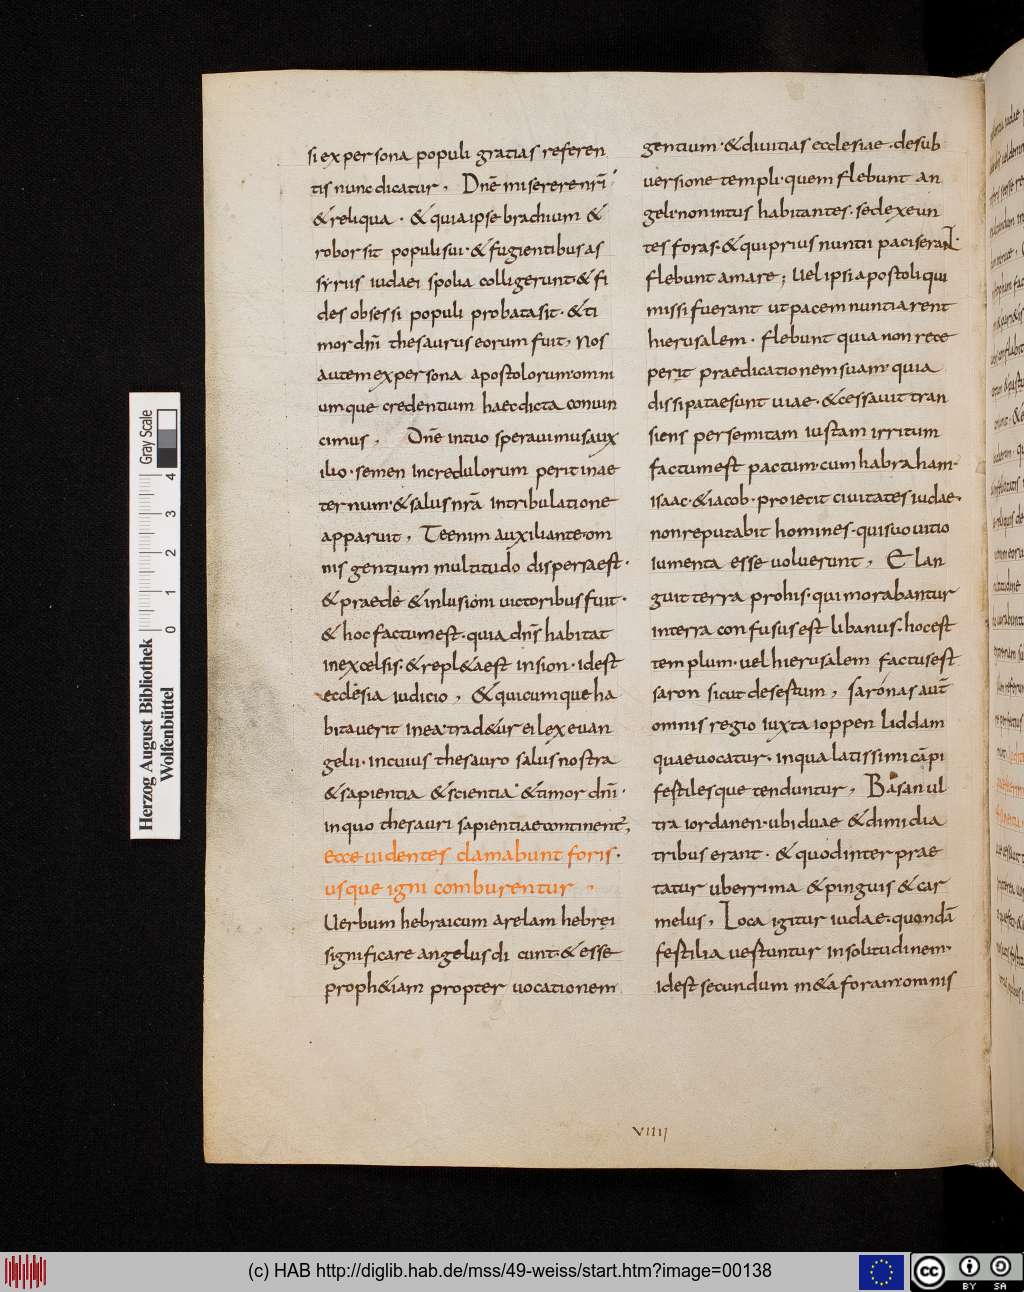 si ex persona populi gratias referen
tis nunc dicatur, Dnē misererenr̄i
& reliqua · & quia ipse brachium &
robor sit populi sui · & fugientibus as
syriis iudaei spolia colligerunt · & fi
des obsessi populi probata sit · & ti
mor dn̄i thesaurus eorum fuit, Nos
autem ex persona apostolorum omni
umque credentium haec dicta conuin
cimus, Dnē in tuo sperauimus aux
ilio · semen incredulorum perit in ae
ternum · & salus nr̄a in tribulatione
apparuit, Te enim auxiliante · om
nis gentium multitudo dispersa est ·
& praede & inlusioni uictoribus fuit ·
& hoc factum est · quia dn̄s habitat
in excelsis · & repl&a est in sion · id est
ecclesia iudicio, & quicumque ha
bitauerit in ea · trad&ur ei lex euan
gelii · in cuius thesauro salus nostra
& sapientia & scientia · & timor dn̄i ·
in quo thesauri sapientiae continent̄,
ecce uidentes clamabunt foris ·
usque igni comburentur ,
Uerbum hebraicum arelam hebrei
significare angelus di cunt · & esse
proph&iam propter uocationem
gentium · & diuitias ecclesiae · de sub
uersione templi · quem flebunt an
geli · non intus habitantes · sed exeun
tes foras · & qui prius nuntii pacis erant ·
flebunt amare; Uel ipsi apostoli qui
missi fuerant ut pacem nuntiarent
hierusalem · flebunt quia non rece
perit praedicationem suam · quia
dissipatae sunt uiae · & cessauit tran
siens per semitam iustam irritum
factum est pactum · cum habraham ·
isaac · & iacob · proiecit ciuitates iudae ·
non reputabit homines · qui suo uitio
iumenta esse uoluerunt, E lan
guit terra pro his · qui morabantur
in terra confusus est libanus · hoc est
templum · uel hierusalem factus est
saron sicut desestum, saronas aut̄
omnis regio iuxta ioppen liddam
quae uocatur · in qua latissimi cāpi
festilesque tenduntur, Basan ul
tra iordanen · ubi duae & dimidia
tribus erant · & quod inter prae
tatur uberrima & pinguis & car
melus, Loca igitur iudae · quondā
festilia uestuntur in solitudinem ·
Id est secundum m&aforam · omnis
VIIII
Herzog August Bibliothek
Wolfenbüttel
Gray Scale
0 1 2 3 4
(c) HAB http://diglib.hab.de/mss/49-weiss/start.htm?image=00138
cc BY SA